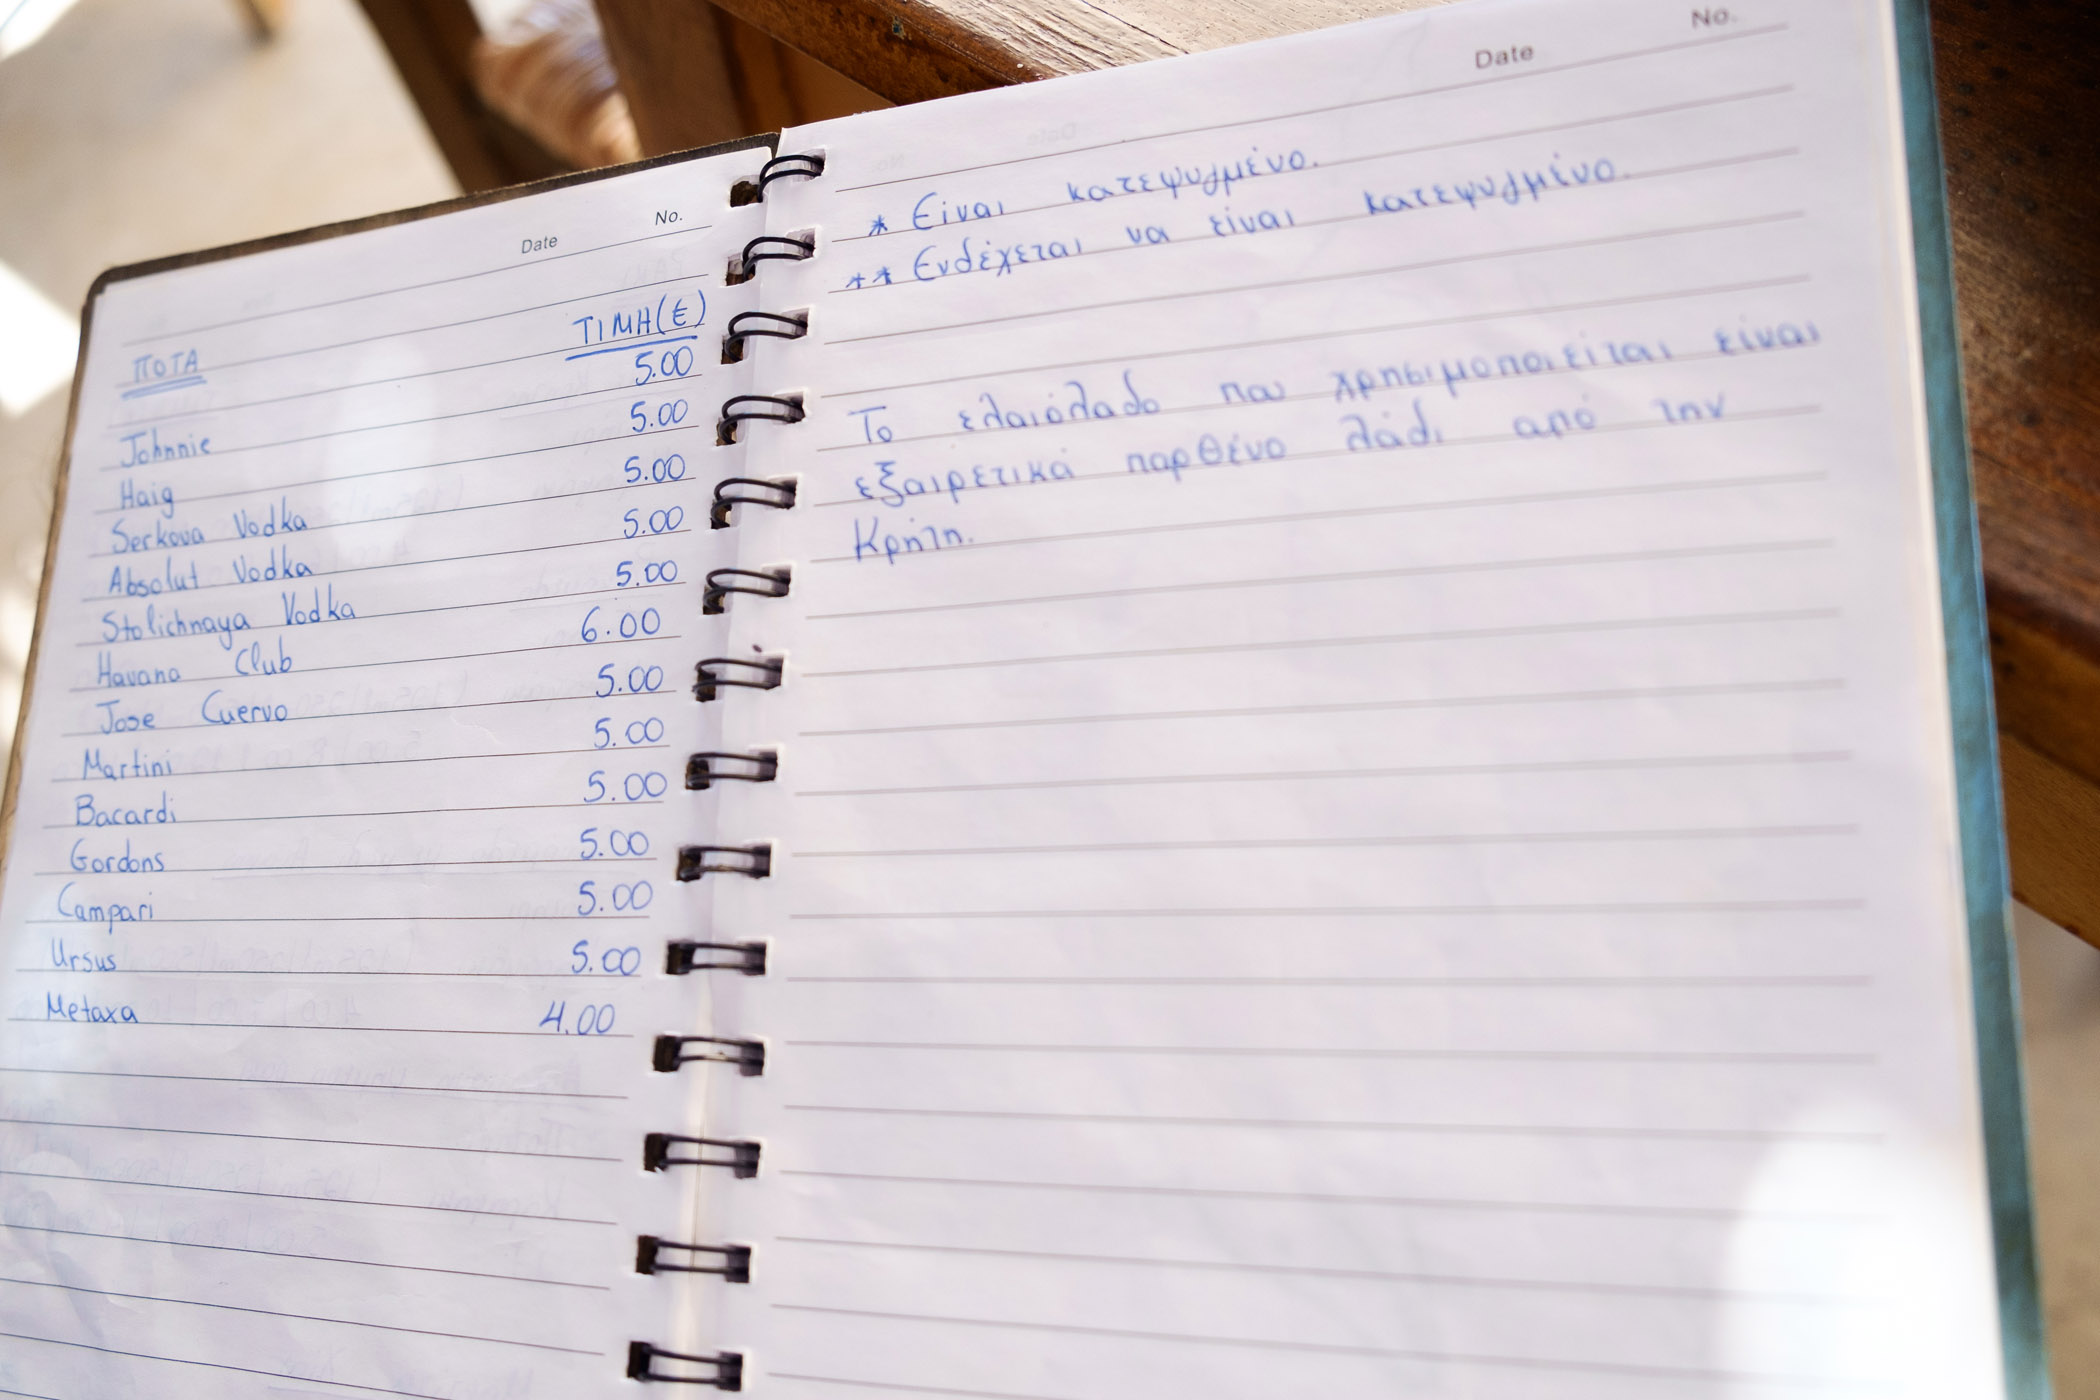 Date No.
ΠΟΤΑ ΤΙΜΗ(€)
Johnnie 5.00
Haig 5.00
Serkova Vodka 5.00
Absolut Vodka 5.00
Stolichnaya Vodka 5.00
Havana Club 6.00
Jose Cuervo 5.00
Martini 5.00
Bacardi 5.00
Gordons 5.00
Campari 5.00
Ursus 5.00
Metaxa 4.00
Date No.
* Είναι κατεψυγμένο.
** Ενδέχεται να είναι κατεψυγμένο.
Το ελαιόλαδο που χρησιμοποιείται είναι
εξαιρετικά παρθένο λάδι από την
Κρήτη.